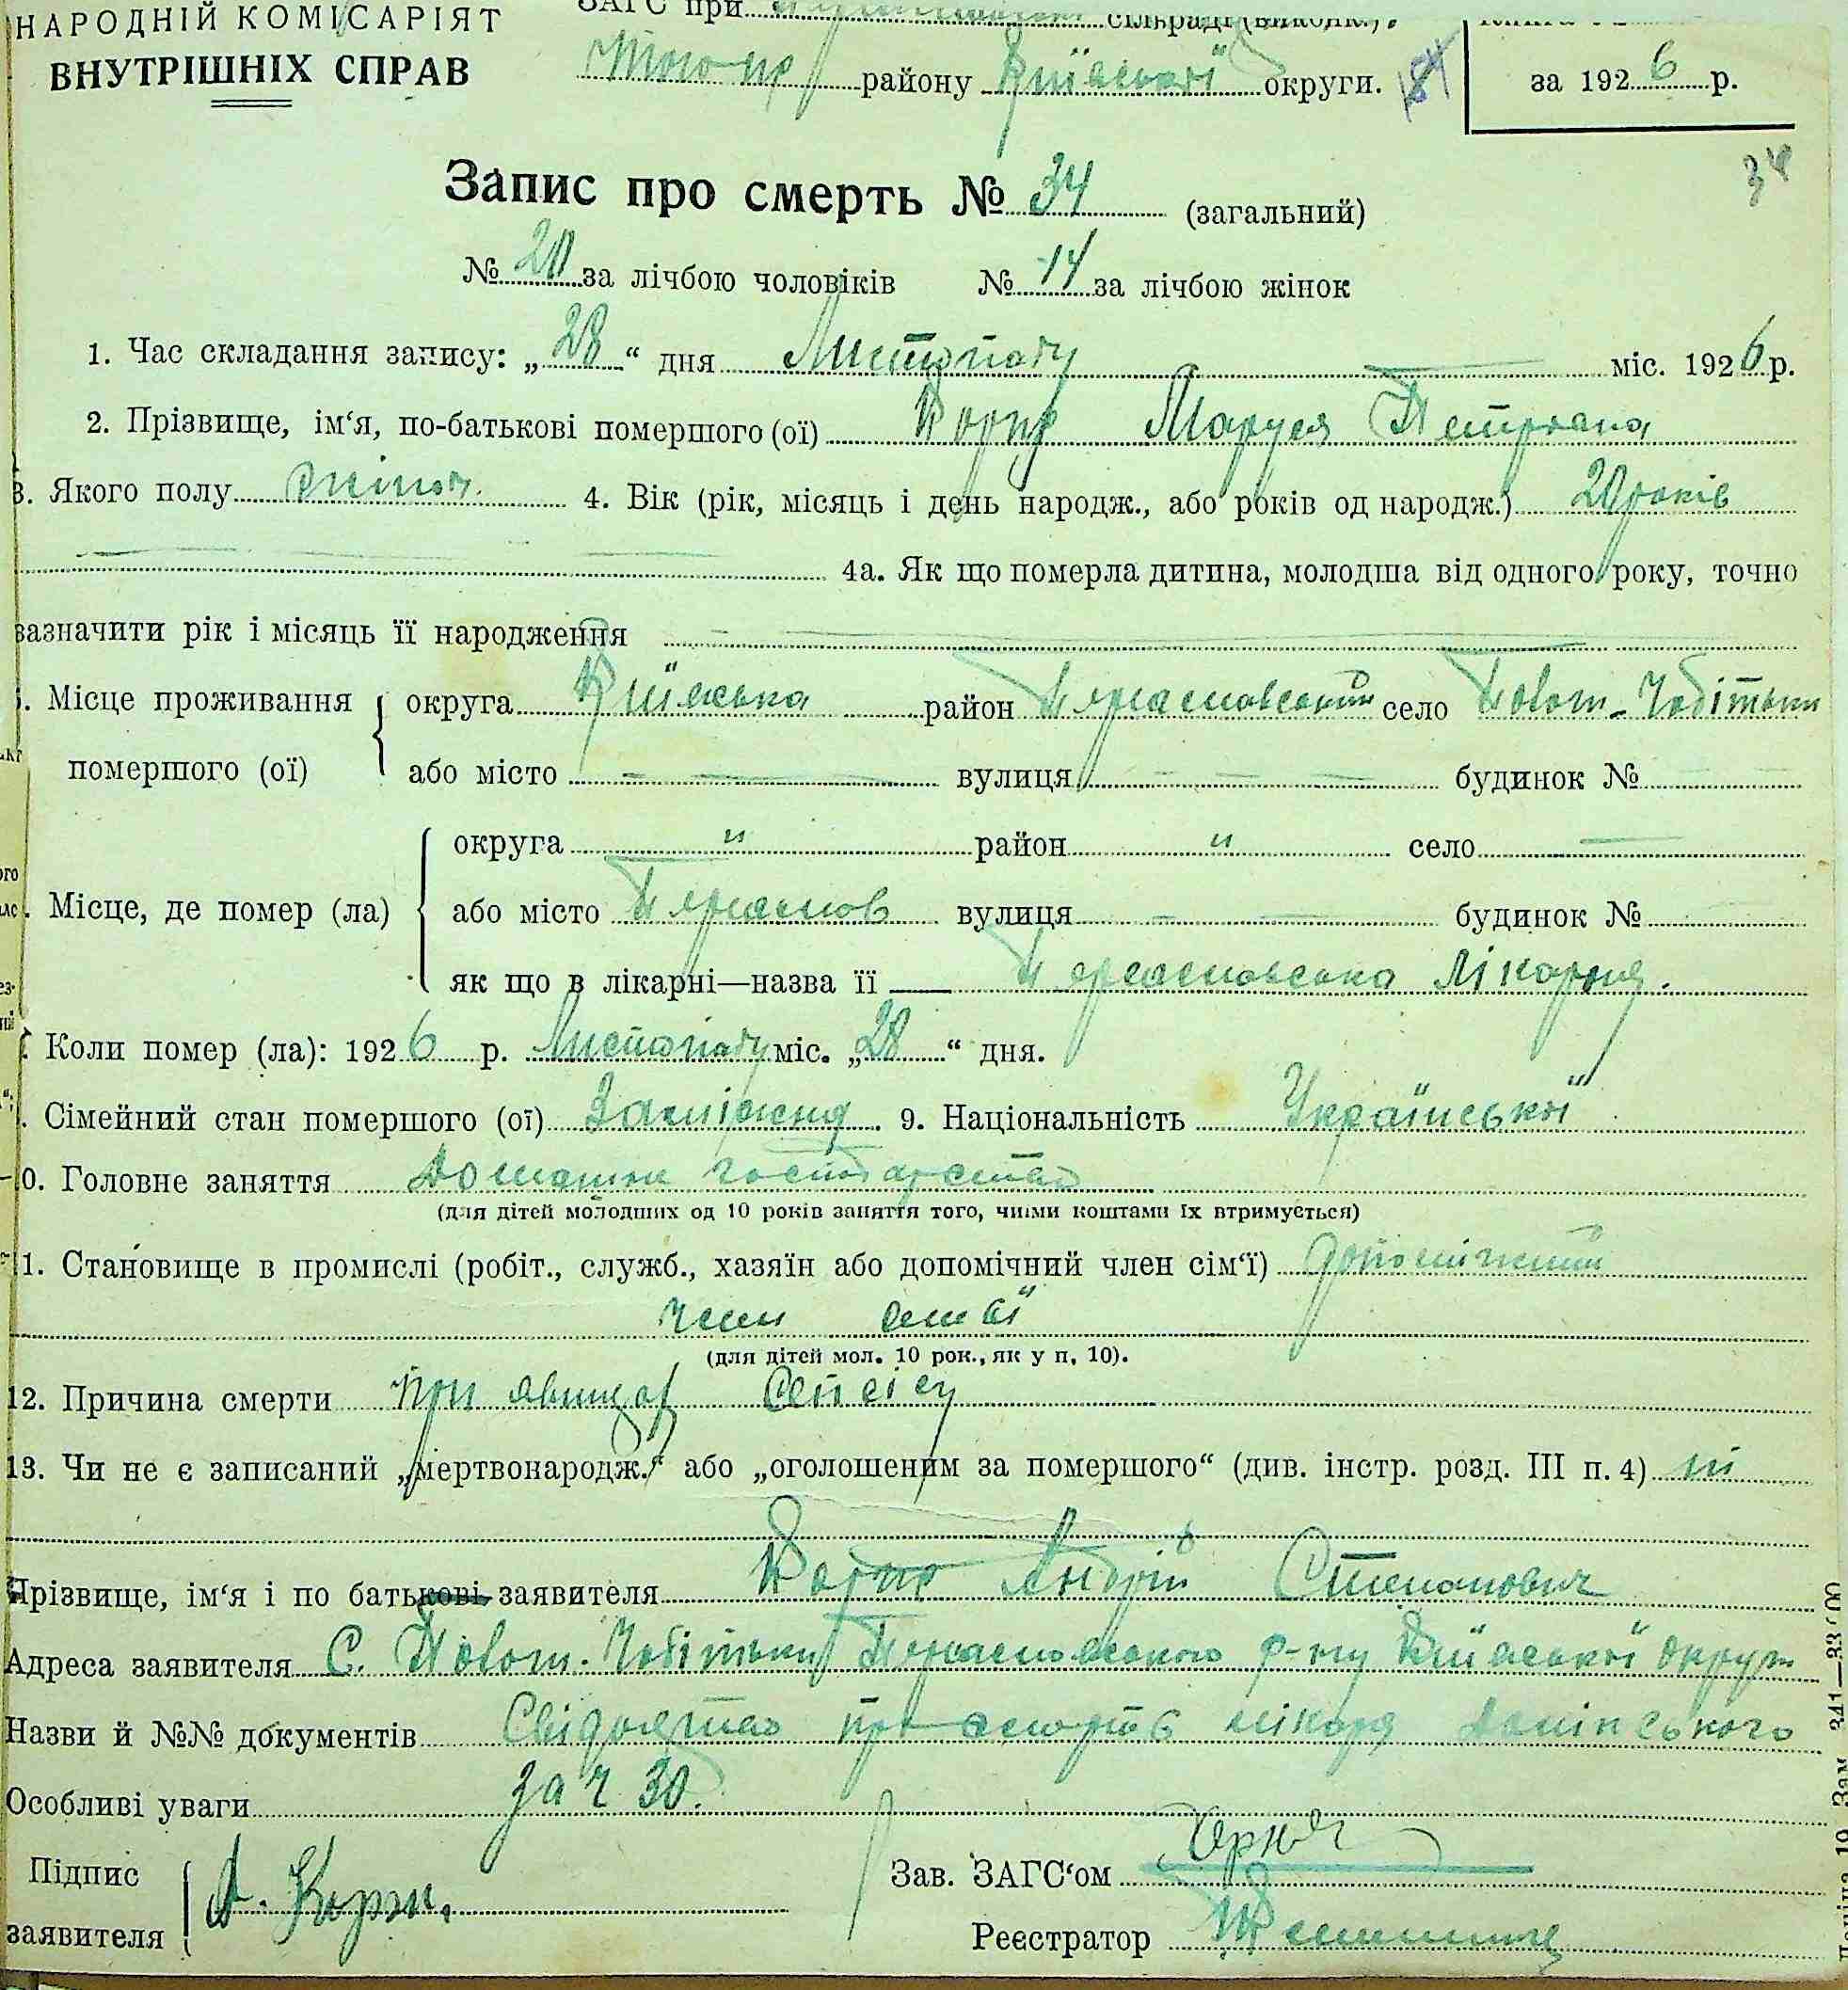 НАРОДНІЙ КОМІСАРІЯТ
ВНУТРІШНІХ СПРАВ
ЗАГС при сільраді (виконк.).
Того пр району Київської округи. 84
за 1926 р.
34
Запис про смерть № 34 (загальний)
№ 20 за лічбою чоловіків № 14 за лічбою жінок
1. Час складання запису: „28“ дня Листопаду міс. 1926 р.
2. Прізвище, ім‘я, по-батькові помершого (ої) Корж Маруся Петровна
3. Якого полу жіноч. 4. Вік (рік, місяць і день народж., або років од народж.) 20 років
4а. Як що померла дитина, молодша від одного року, точно
зазначити рік і місяць її народження
. Місце проживання помершого (ої) округа Київська район Германовський село Пологи-Чобітьки
або місто — вулиця — будинок № —
. Місце, де помер (ла) округа " район " село —
або місто Германов вулиця — будинок №
як що в лікарні—назва її — Германовська Лікарня.
Коли помер (ла): 1926 р. Листопаду міс. „28“ дня.
. Сімейний стан помершого (ої) Заміжня 9. Національність Української
0. Головне заняття Домашнє господарство
(для дітей молодших од 10 років заняття того, чиїми коштами їх втримується)
1. Становище в промислі (робіт., служб., хазяїн або допомічний член сім‘ї) допоміжний
член семьї
(для дітей мол. 10 рок., як у п. 10).
12. Причина смерти при явищах Сепсісу
13. Чи не є записаний „мертвонародж.“ або „оголошеним за помершого“ (див. інстр. розд. III п. 4) ні
Прізвище, ім‘я і по батькові заявителя Корж Андрій Степанович
Адреса заявителя С. Пологи-Чобітьки Германовського р-ну Київської округи
Назви й №№ документів Свідоцтво про смерть лікаря
Особливі уваги за ч 30.
Підпис заявителя А. Корж.
Зав. ЗАГС‘ом
Реєстратор